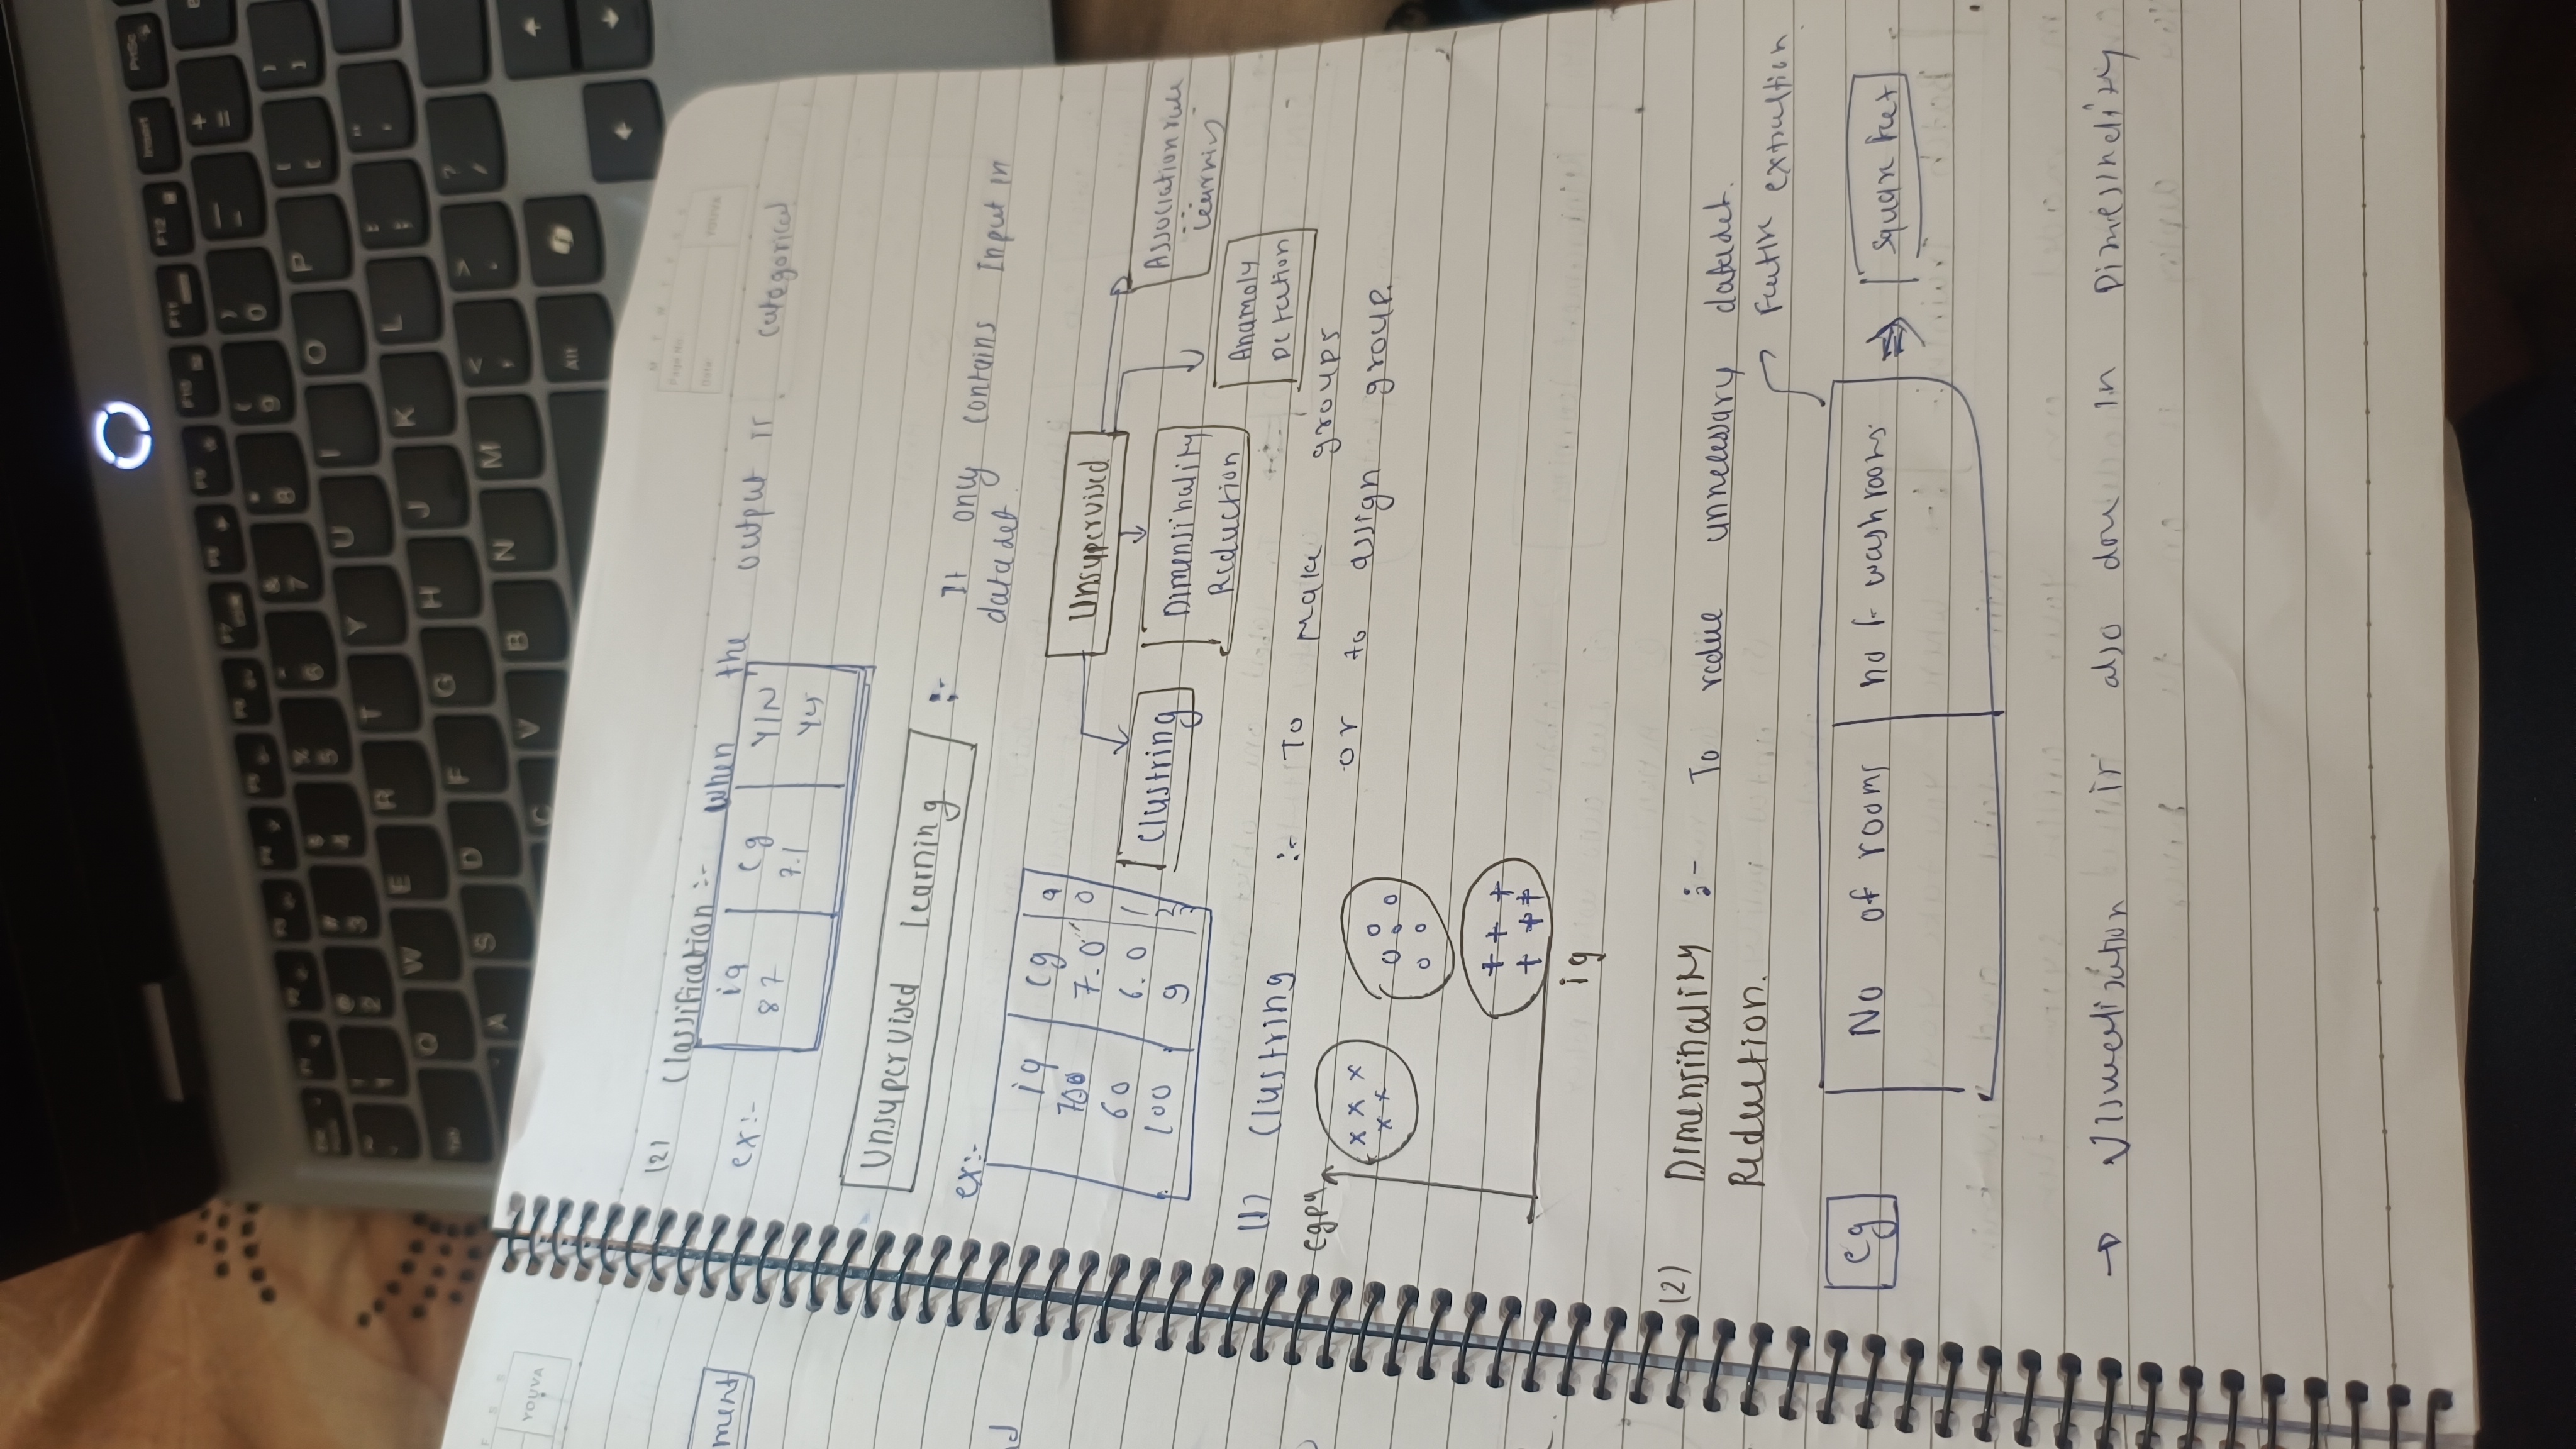 (2) Classification :- When the output is categorical
ex:-
iq | cg | Y/N
87 | 7.1 | yes
Unsupervised learning :- It only contains Input in
datadet.
ex:-
iq | cg | 9
700 | 7.0 | 0
60 | 6.0 | 1
100 | 9
Unsupervised
Clustring
Dimensinality
Reduction
Anamoly
Detection
Association rule
learning
(1) Clustring :- To make groups
or to assign group.
cgpa
x x x
x x
o o o
+ + +
+ + +
iq
(2) Dimensinality :- To reduce unnecessary datadet.
Reduction.
Feature extraction
eg
No of rooms | no of washrooms
⇒ Square feet
→ Visuvelization is also done in
YOUVA
Page No.
Date:
YOUVA
ment
PrtSc
Insert
F12
F11
Alt
O P
I
U
Y
T
R
E
W
Q
L
K
J
H
G
F
D
S
A
M
N
B
V
C